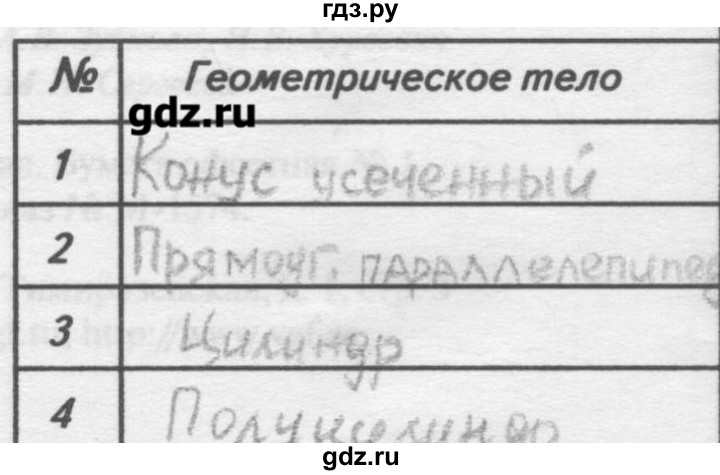 гдз.ру
№ Геометрическое тело
gdz.ru
1 Конус усеченный
2 Прямоуг. параллелепипед
3 Цилиндр
4 Полуцилиндр
gdz.ru